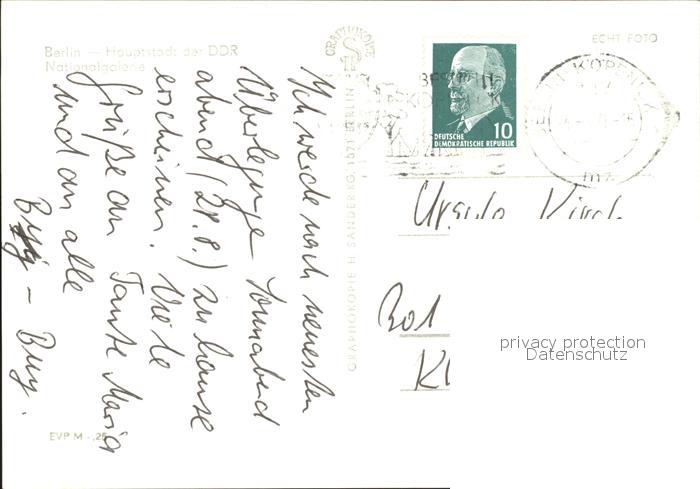 Berlin — Hauptstadt der DDR
Nationalgalerie
ECHT FOTO
GRAPHOKOPIE
BERLIN
KÖPENICK
DEUTSCHE
DEMOKRATISCHE REPUBLIK
10
Ich werde nach neuesten
Überlegungen Sonnabend
abend (21.8.) zu Hause
erscheinen. Viele
Grüße an Tante Maria
und an alle
Buy.
GRAPHOKOPIE H SANDER KG, 1071 BERLIN
Ursula
privacy protection
Datenschutz
EVP M -,25